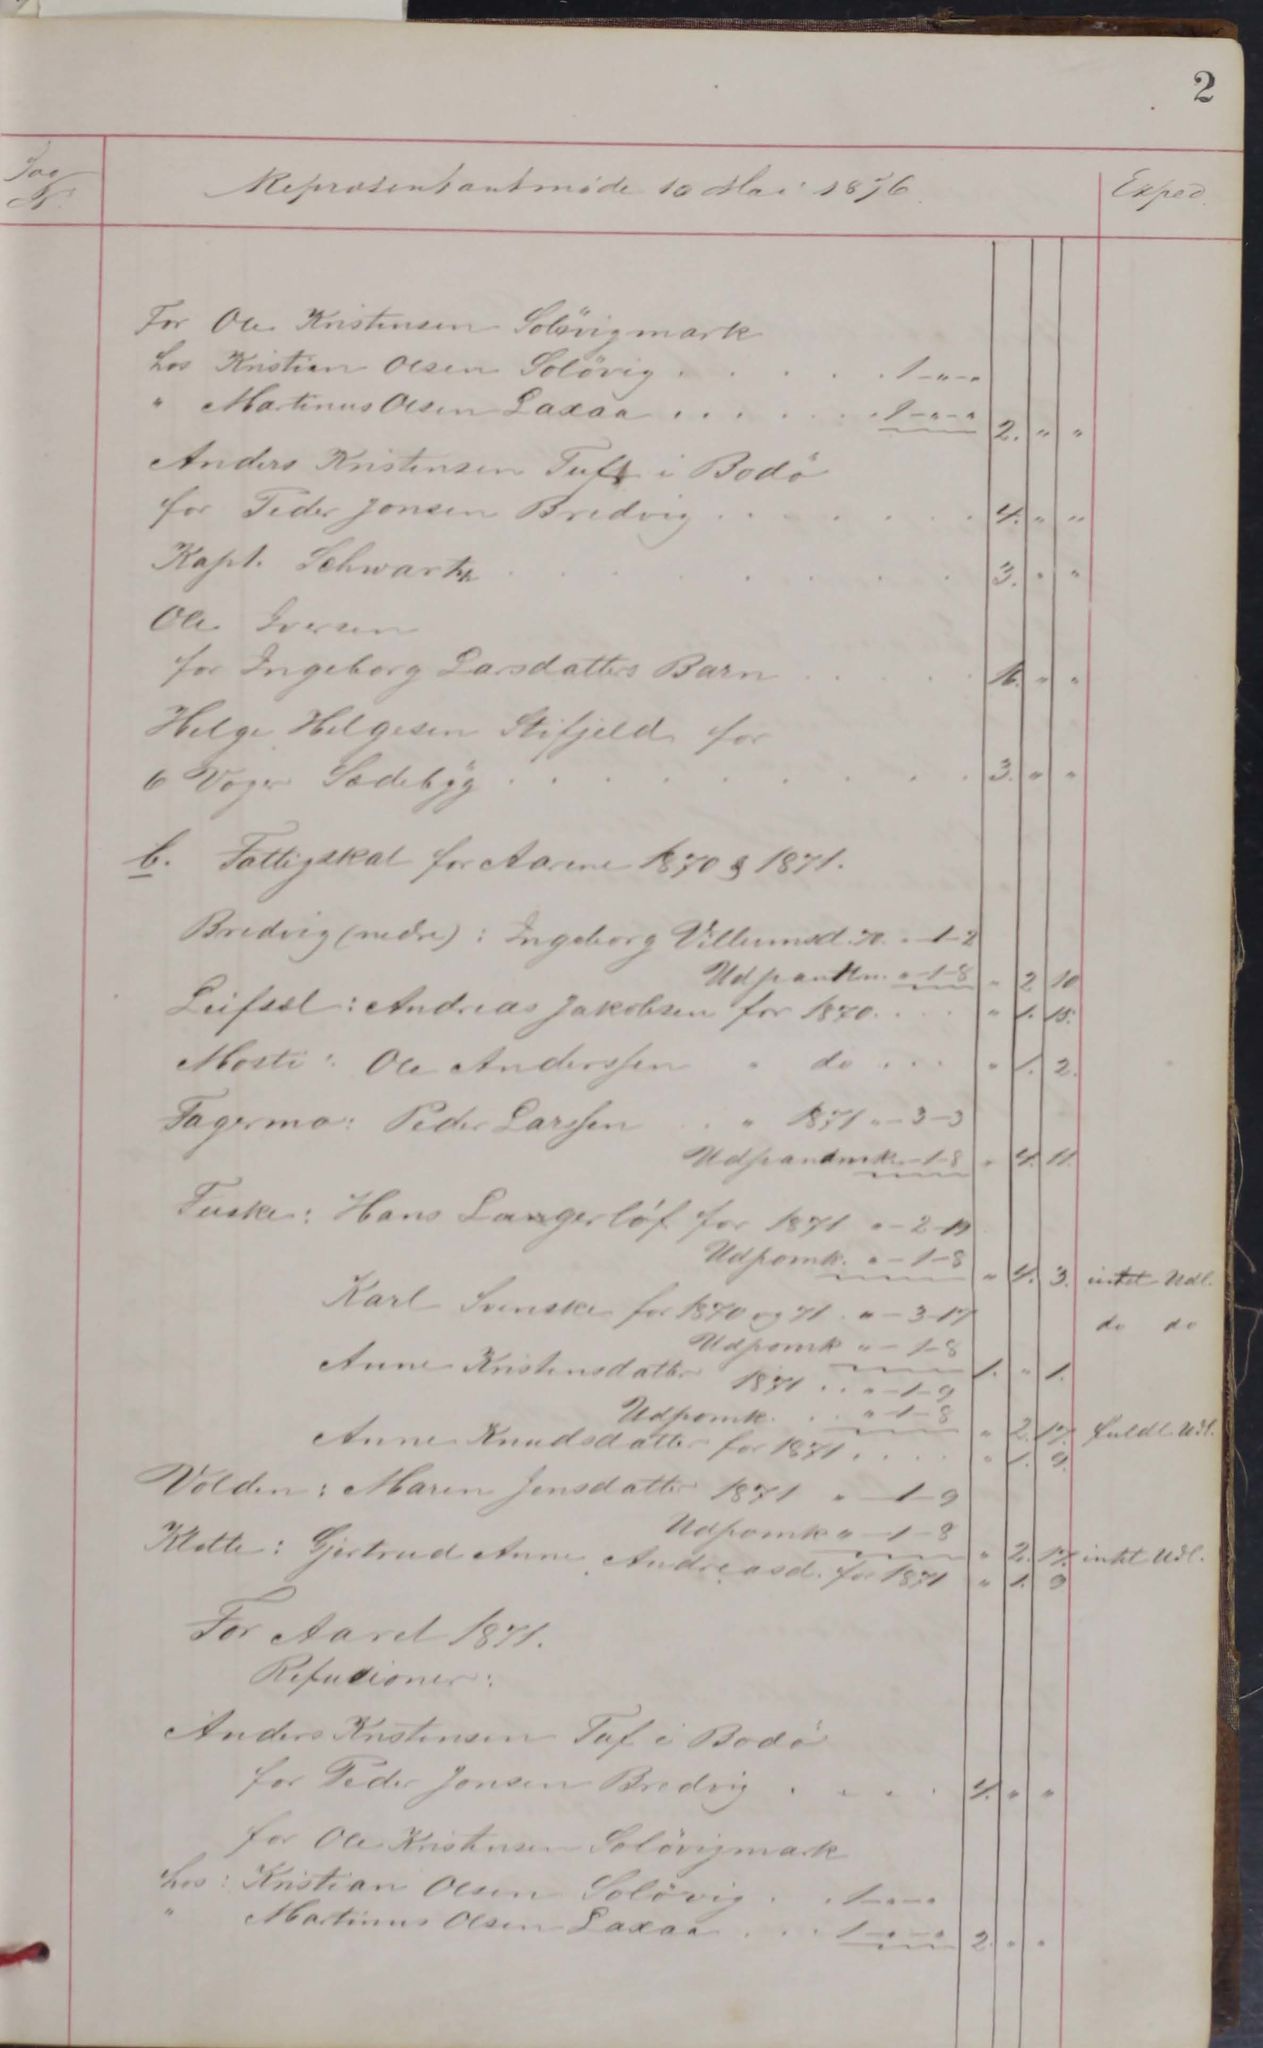 2
Sag
No
Repræsentantmöde 10 Mai 1876.
Exped.
For Ole Kristensen Solövigmark
hos Kristian Olsen Solövig . . . . . 1-"-"
" Martinus Olsen Laxaa . . . . . 1-"-" 2. " "
Anders Kristensen Tuf i Bodö
for Peder Jonsen Bredvig . . . . . 4. " "
Kapt. Schwartz . . . . . 3. " "
Ole Iversen
for Ingeborg Larsdatters Barn . . . . . 16. " "
Helge Helgesen Stifjeld for
6 Voger Sædebyg . . . . . 3. " "
b. Fattigskat for Aarene 1870 & 1871.
Bredvig (nedre) : Ingeborg Villumsd. 70. " -1-2
Udpantn. "-1-8 " 2 10
Leifsel : Andreas Jakobsen for 1870. . . . " 1. 15.
Mosti : Ole Anderssen " do . . . " 1. 2.
Fagermo : Peder Larssen . " 1871 "-3-3
Udpandnk. -1-8 " 4. 11.
Fuske : Hans Langerlöf for 1871 "-2-19
Udpomk. "-1-8 " 4. 3. intet Udl.
Karl Svenske for 1870 og 71 . "-3-17 do do
Udpomk "-1-8 1. " 1.
Anne Kristensdatter 1871 . . "-1-9
Udpomk. . . "-1-8 " 2. 17. fuldt Udl.
Anne Knudsdatter for 1871 . . . . " 1. 9.
Volden : Maren Jensdatter 1871 "-1-9
Udpomk "-1-8 " 2. 17. intet Udl.
Klette : Gjertrud Anne Andreasd. for 1871 " 1. 9
For Aaret 1871.
Refusioner :
Anders Kristensen Tuf i Bodö
for Peder Jonsen Bredvig . . . . 4. " "
for Ole Kristensen Solövigmark
hos : Kristian Olsen Solövig . . 1-"-"
" Martinus Olsen Laxaa . . . 1-"-" 2. " "